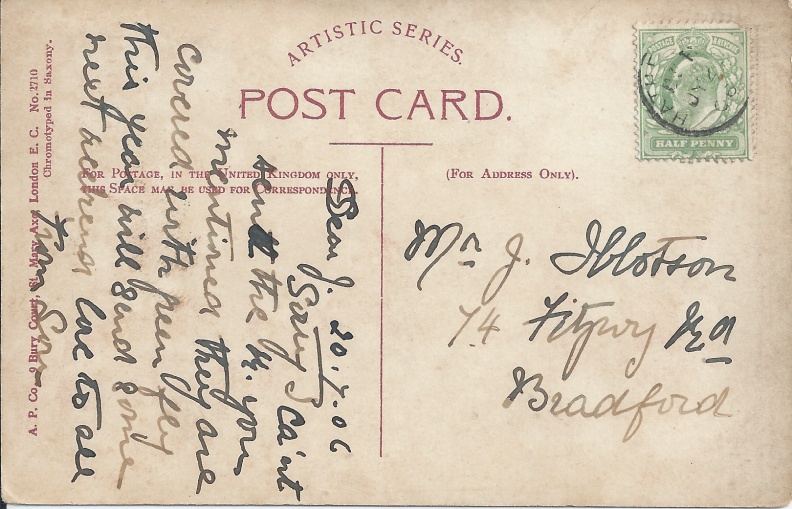 ARTISTIC SERIES.
POST CARD.
FOR POSTAGE, IN THE UNITED KINGDOM ONLY,
THIS SPACE MAY BE USED FOR CORRESPONDENCE.
(FOR ADDRESS ONLY).
POSTAGE REVENUE
HALF PENNY
Mr J. Ibbotson
74 Fitzroy Rd
Bradford
Dear J. 20.7.06
Sorry I ca'nt
send the you
mentioned they are
covered with green fly
this year will send some
next weekend love to all
from
A. P. Co., 9 Bury Court, St. Mary Axe, London E. C. No. 2710
Chromotyped in Saxony.